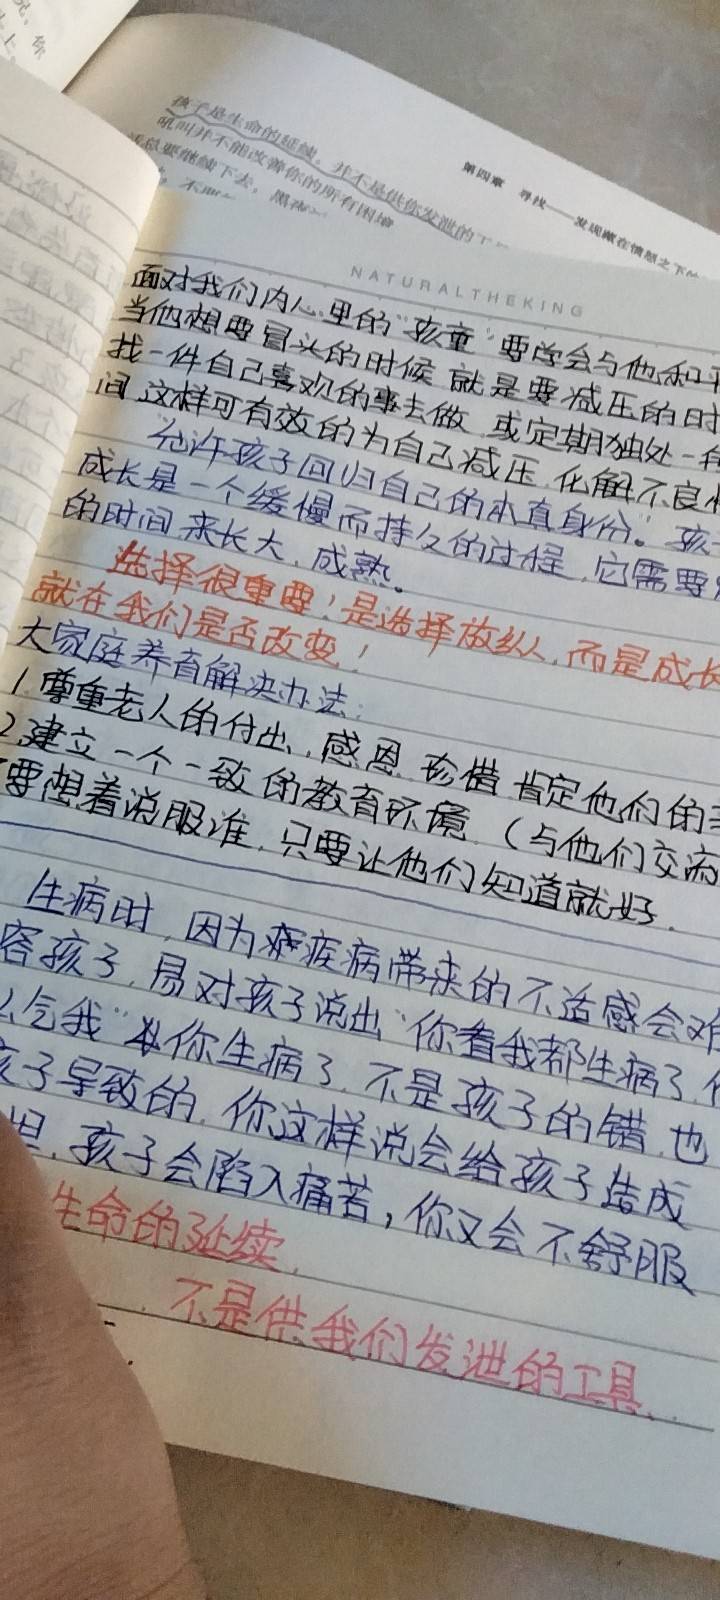 孩子是生命的延续，并不是供你发泄的工
吼叫并不能改善你的所有困难
总要继续下去，黑夜
第四章 寻找——发现藏在情绪之下的
NATURALTHEKING
面对我们内心里的“孩童”要学会与他和平
当他想要冒头的时候 就是要减压的时
找一件自己喜欢的事去做 或定期独处一
间 这样可有效的为自己减压 化解不良
“允许孩子回归自己的本直身份”。孩
成长是一个缓慢而持久的过程，它需要
的时间 来长大，成熟。
选择很重要！是选择放纵，而是成长
就在我们是否改变！
大家庭养育解决办法：
1.尊重老人的付出，感恩 珍惜 肯定他们的
2.建立一个一致的教育环境.（与他们交流
要想着说服谁，只要让他们知道就好.
生病时，因为疾病带来的不适感会难
容孩子，易对孩子说出“你看我都生病了，
么气我”从你生病了，不是孩子的错，也
孩子导致的，你这样说会给孩子造成
，孩子会陷入痛苦，你又会不舒服
生命的延续，
不是供我们发泄的工具